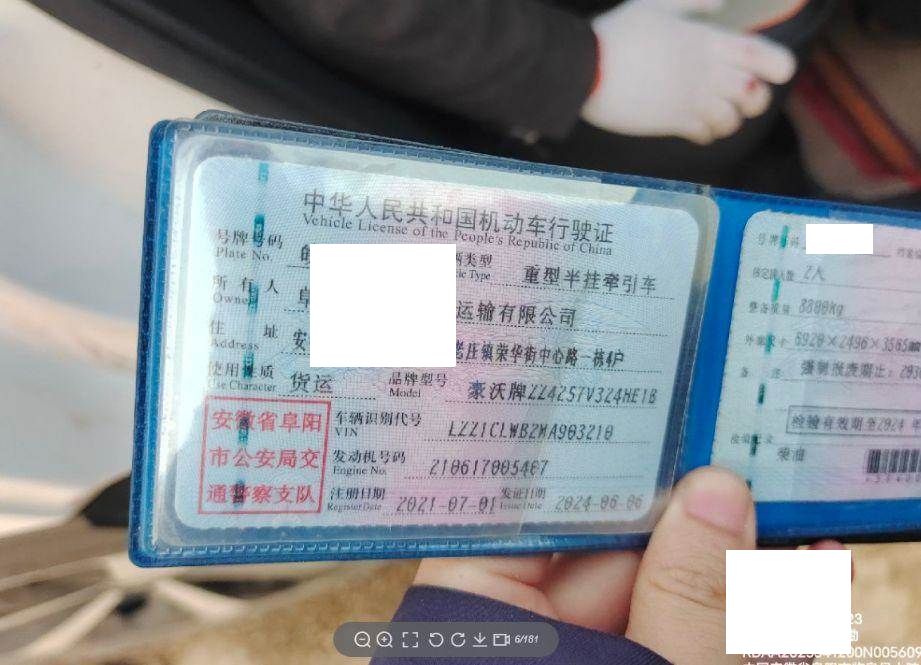 中华人民共和国机动车行驶证
Vehicle License of the People's Republic of China
号牌号码
Plate No.
类型
Type
重型半挂牵引车
所有人
Owner
阜
运输有限公司
住址
Address
安
老庄镇荣华街中心路一栋4户
使用性质
Use Character
货运
品牌型号
Model
豪沃牌ZZ4257V324HE1B
安徽省阜阳
市公安局交
通警察支队
车辆识别代号
VIN
LZZ1CLWB2MA903210
发动机号码
Engine No.
210617005467
注册日期
Register Date
2021-07-01
发证日期
Issue Date
2024-06-06
2人
整备质量
8800kg
外廓尺寸
备注
检验有效期至2024年
柴油
6/181